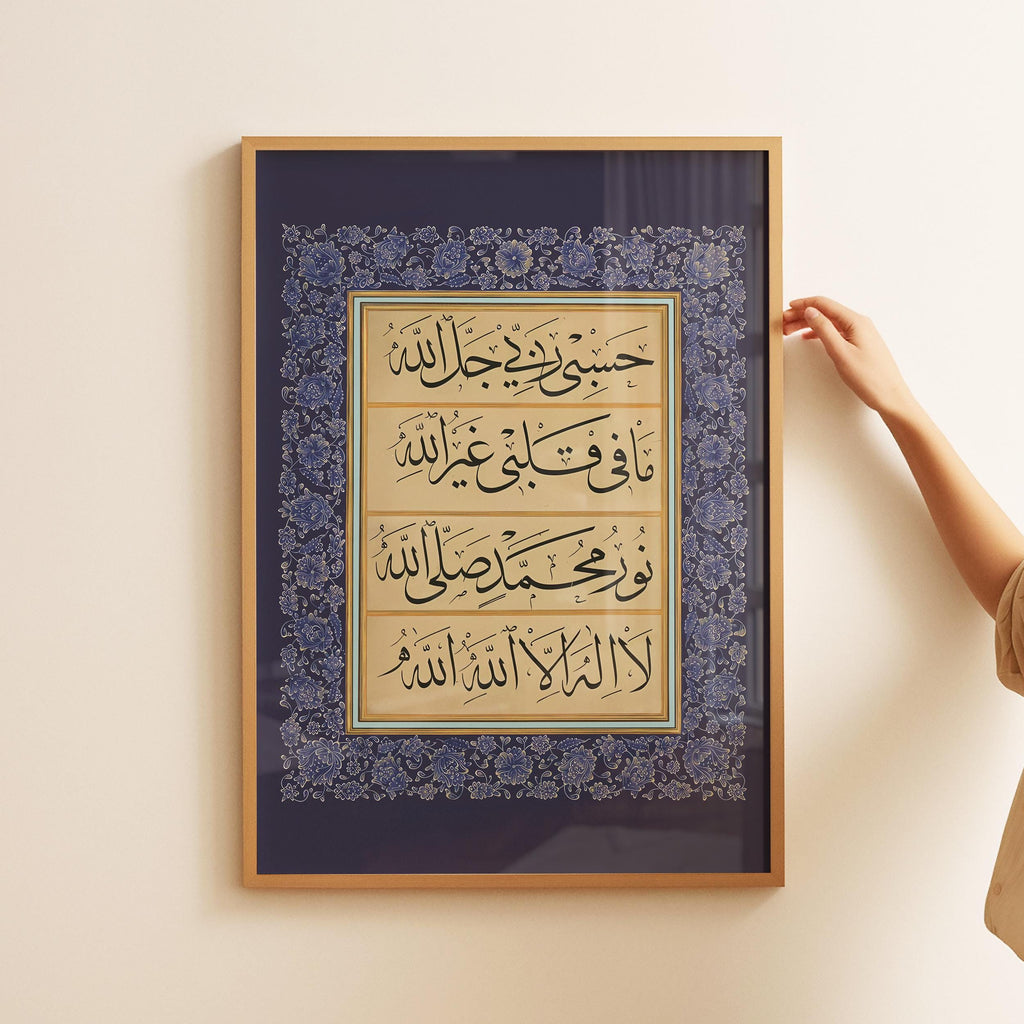 حَسْبِى رَبِّى جَلَّ اللّٰهُ
مَا فِى قَلْبِى غَيْرُ اللّٰهِ
نُورُ مُحَمَّدٍ صَلَّى اللّٰهُ
لَا اِلٰهَ اِلَّا اللّٰهُ اللّٰهُ هُو